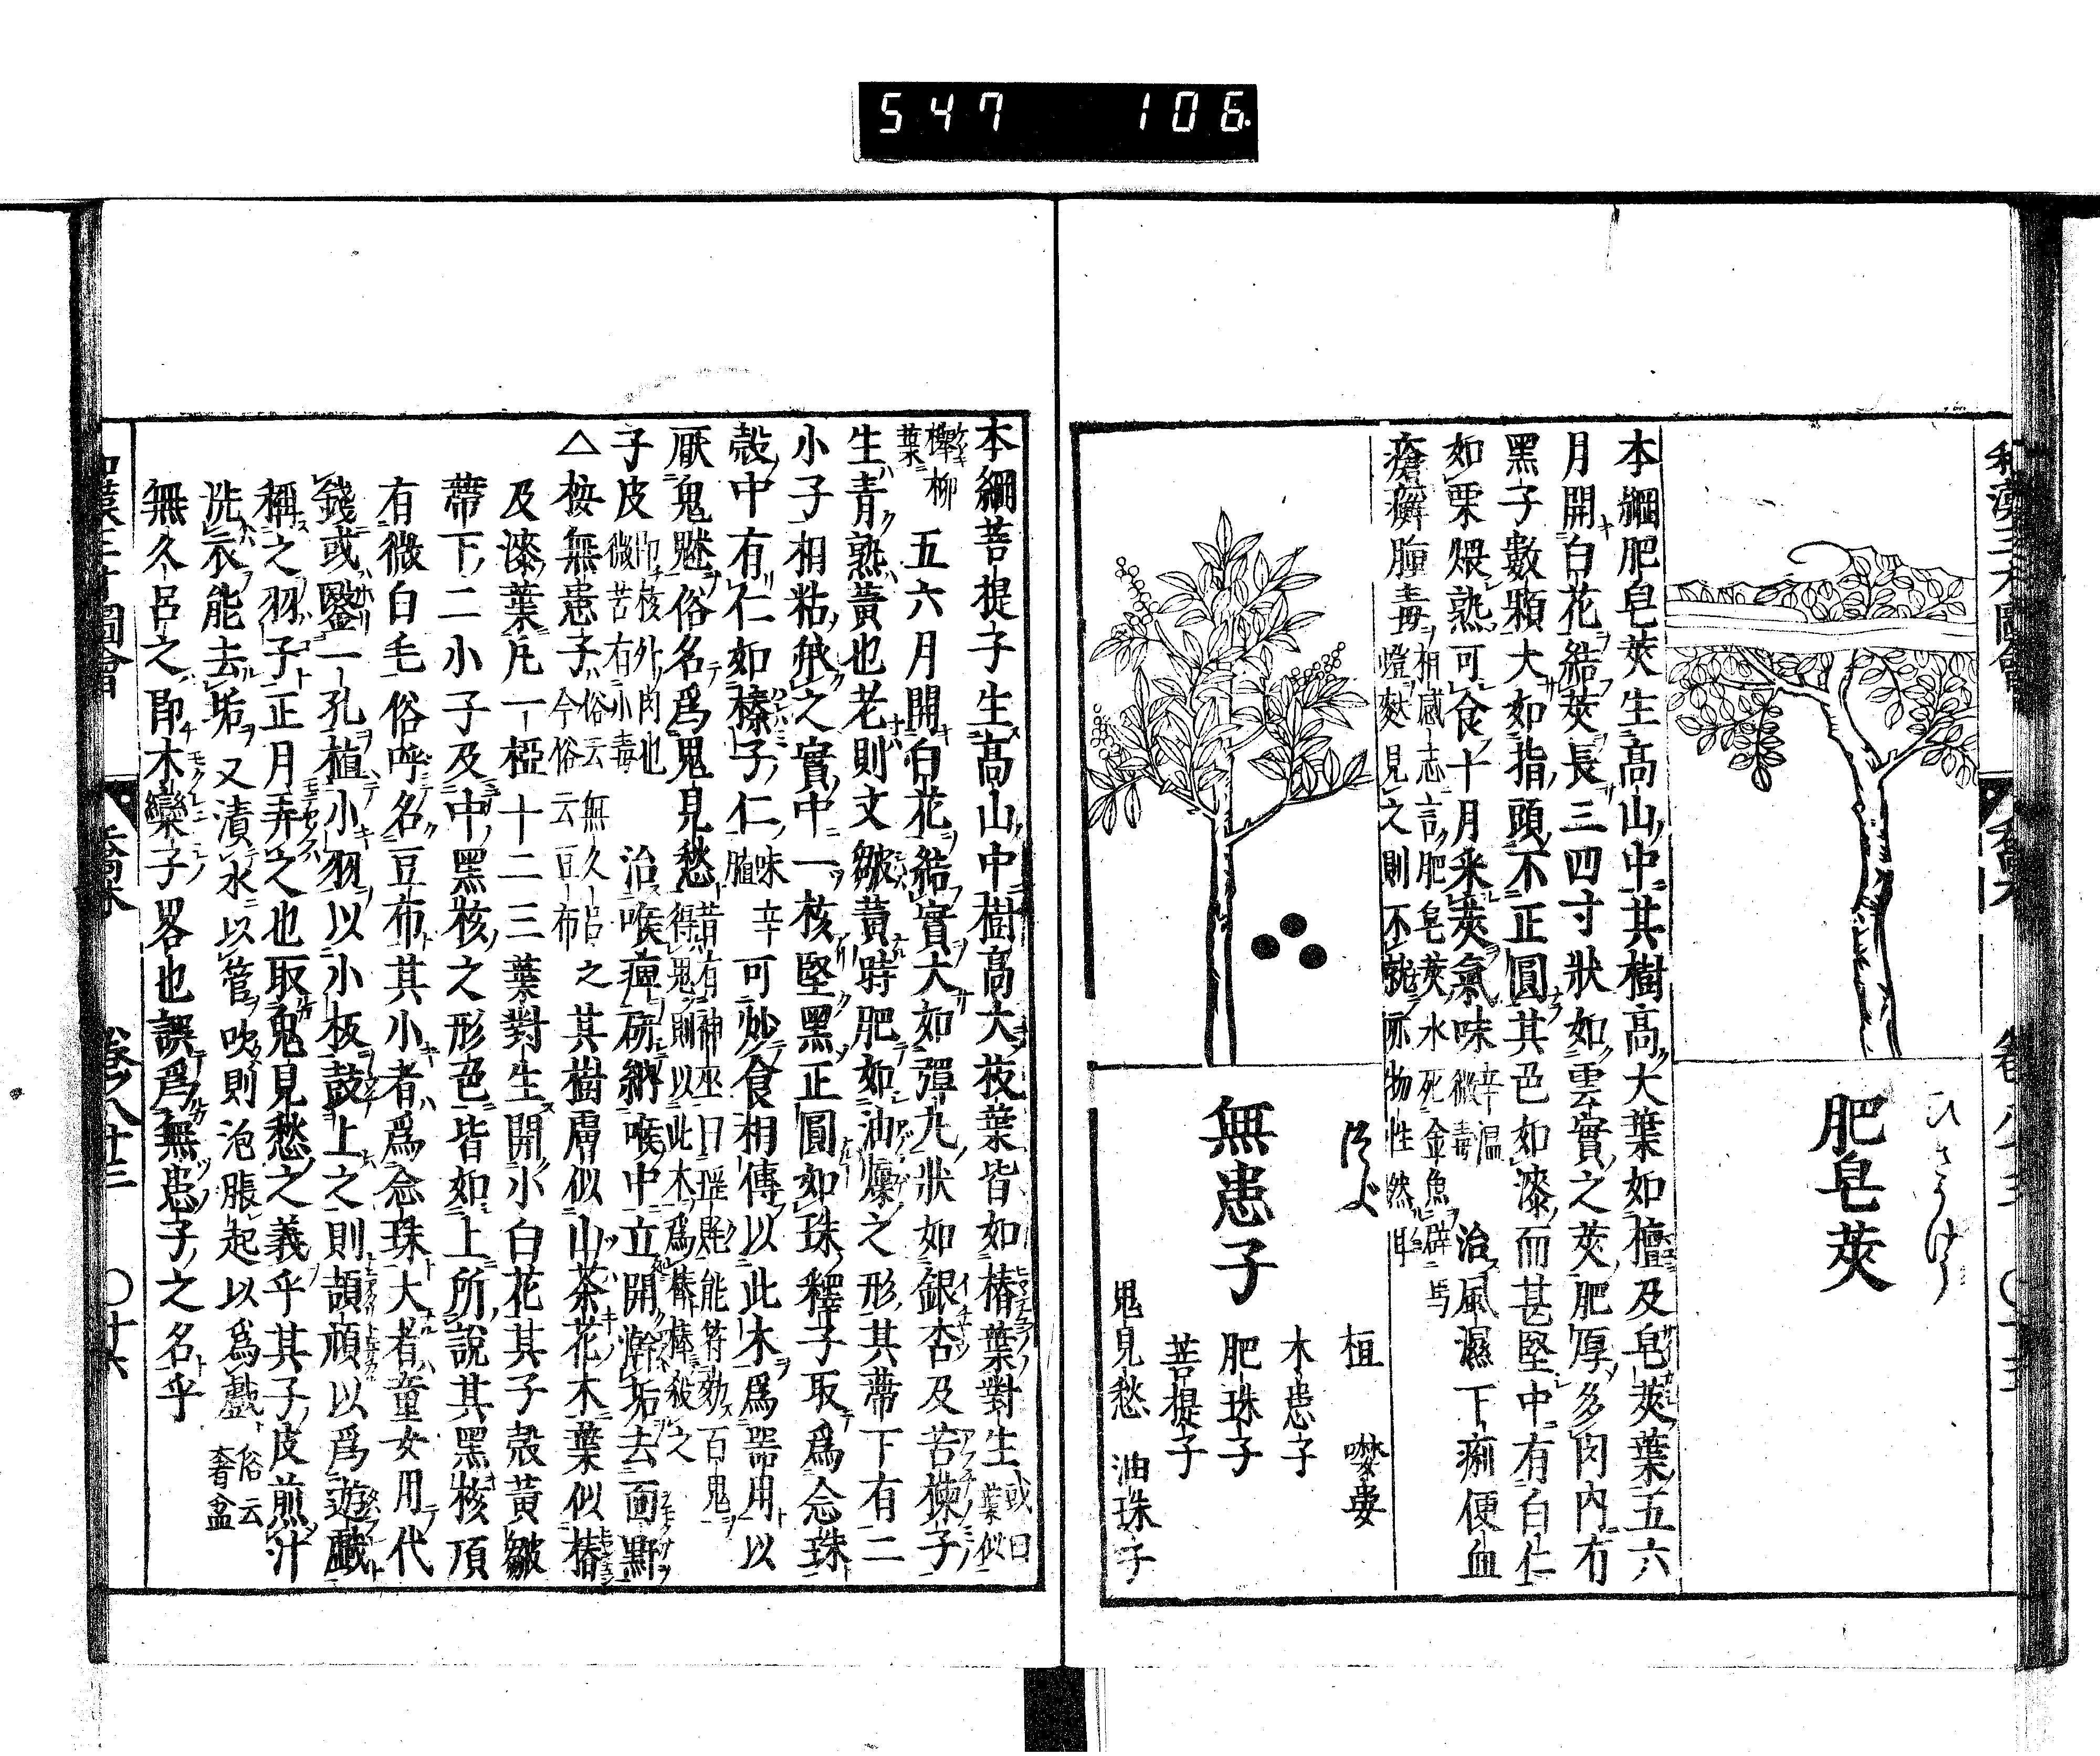 547 106
和漢三才圖會
喬木
ひさうけう
肥皂莢
本綱肥皂莢生高山中其樹高大葉如檀及皂莢葉五六
月開白花結莢長三四寸狀如雲實之莢肥厚多肉內有
黑子數顆大如指頭不正圓其色如漆而甚堅中有白仁
如栗煨熟可食十月采莢氣味辛溫微毒治風濕下痢便血
瘡癬腫毒相感志言肥皂莢水死金魚辟馬
螘麩見之則不就亦物性然耳
つぶ
無患子
桓 噤婁
木患子
肥珠子
菩提子
鬼見愁 油珠子
本綱菩提子生高山中樹高大枝葉皆如椿葉對生或曰葉似
櫸柳葉五六月開白花結實大如彈丸狀如銀杏及苦楝子
生青熟黃也老則文皺黃時肥如油煠之形其蒂下有二
小子相粘承之實中一核堅黑正圓如珠釋子取爲念珠
殼中有仁如榛子仁味辛膻可炒食相傳以此木爲器用以
厭鬼魅俗名爲鬼見愁昔有神巫曰瑶㲋能符劾百鬼
得鬼則以此木爲棒棒殺之
子皮即核外肉也微苦有小毒治喉痺研納喉中立開澣垢去面䵟
△按無患子俗云無久呂之今俗云豆布其樹膚似山茶花木葉似椿
及漆葉凡一椏十二三葉對生開小白花其子殼黃皺
蒂下二小子及中黑核之形色皆如上所說其黑核頂
有微白毛俗呼名豆布其小者爲念珠大者童女用代
錢或鑿一孔植小羽以小板鼓上之則頡頏以爲遊戲
稱之羽子正月弄之也取鬼見愁之義乎其子皮煎汁
洗衣能去垢又漬水以管吹則泡脹起以爲戲俗云奢盆
無久呂之即木欒子畧也誤爲無患子之名乎
喬木 卷之八十三 〇廿六